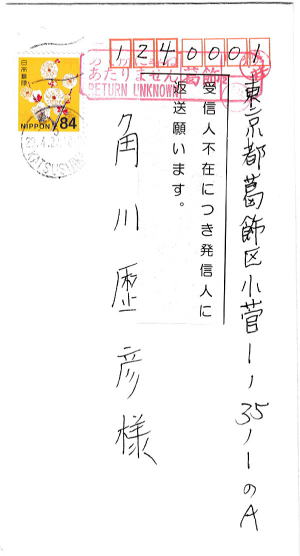 1240001
あたりません 葛飾
RETURN UNKNOWN
日本郵便
NIPPON 84
KATSUSHIKA
東京都葛飾区小菅1-35-1のA
受信人不在につき発信人に
返送願います。
角川歴彦様